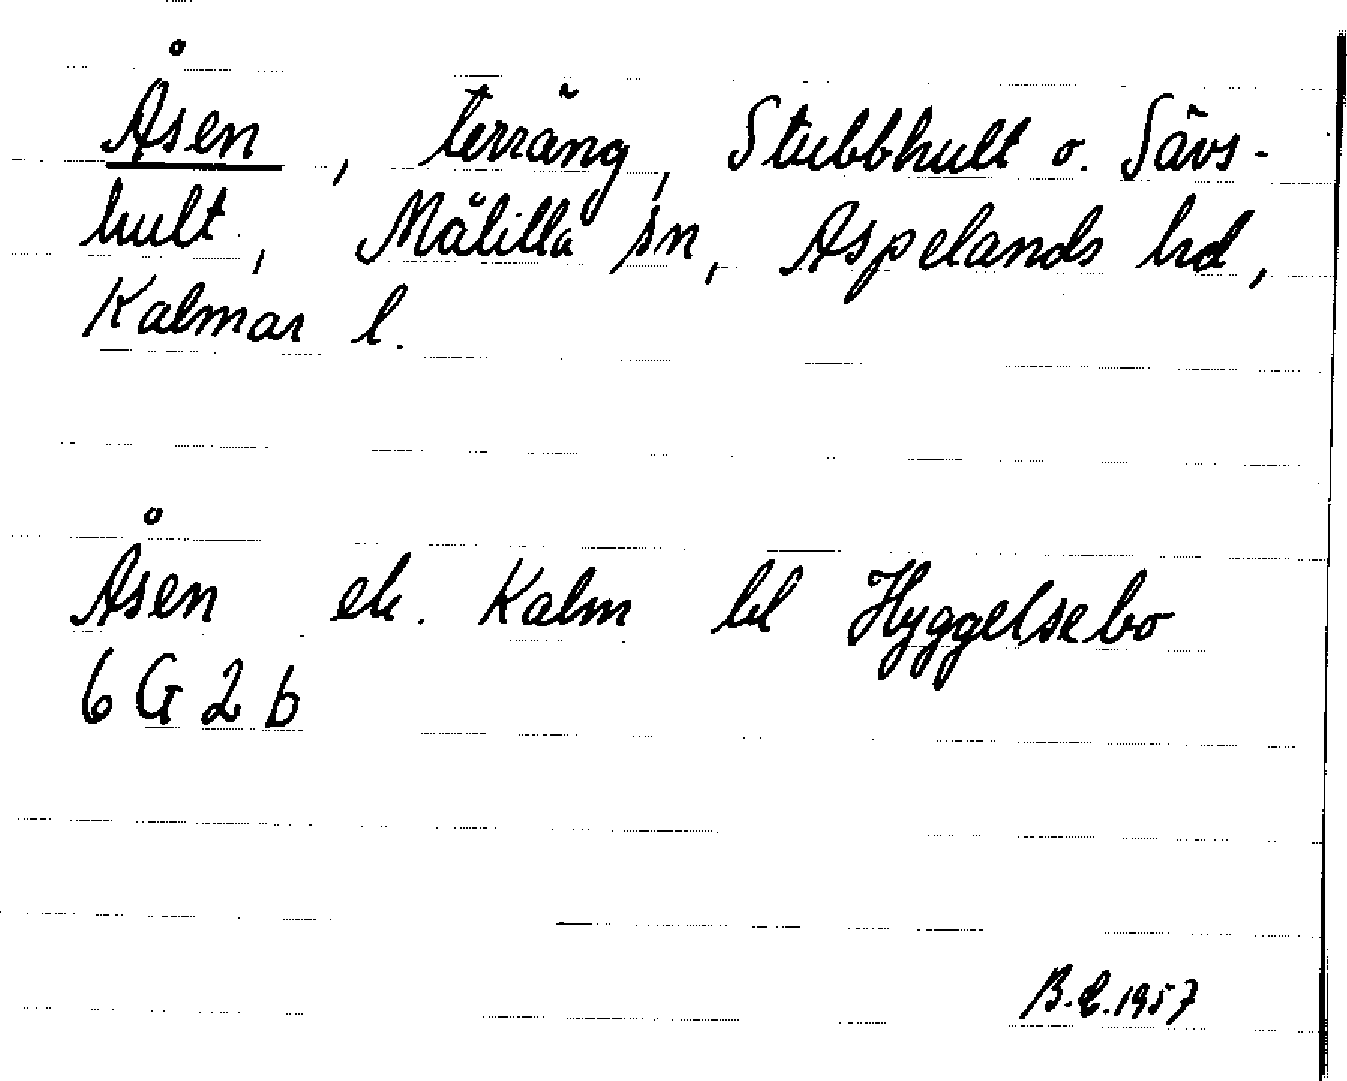 Åsen, terräng, Stubbhult o. Sävs-
hult, Målilla sn, Aspelands hd,
Kalmar l.
Åsen ek. Kalm bl Hyggelsebo
6 G 2 b
B.E. 1957